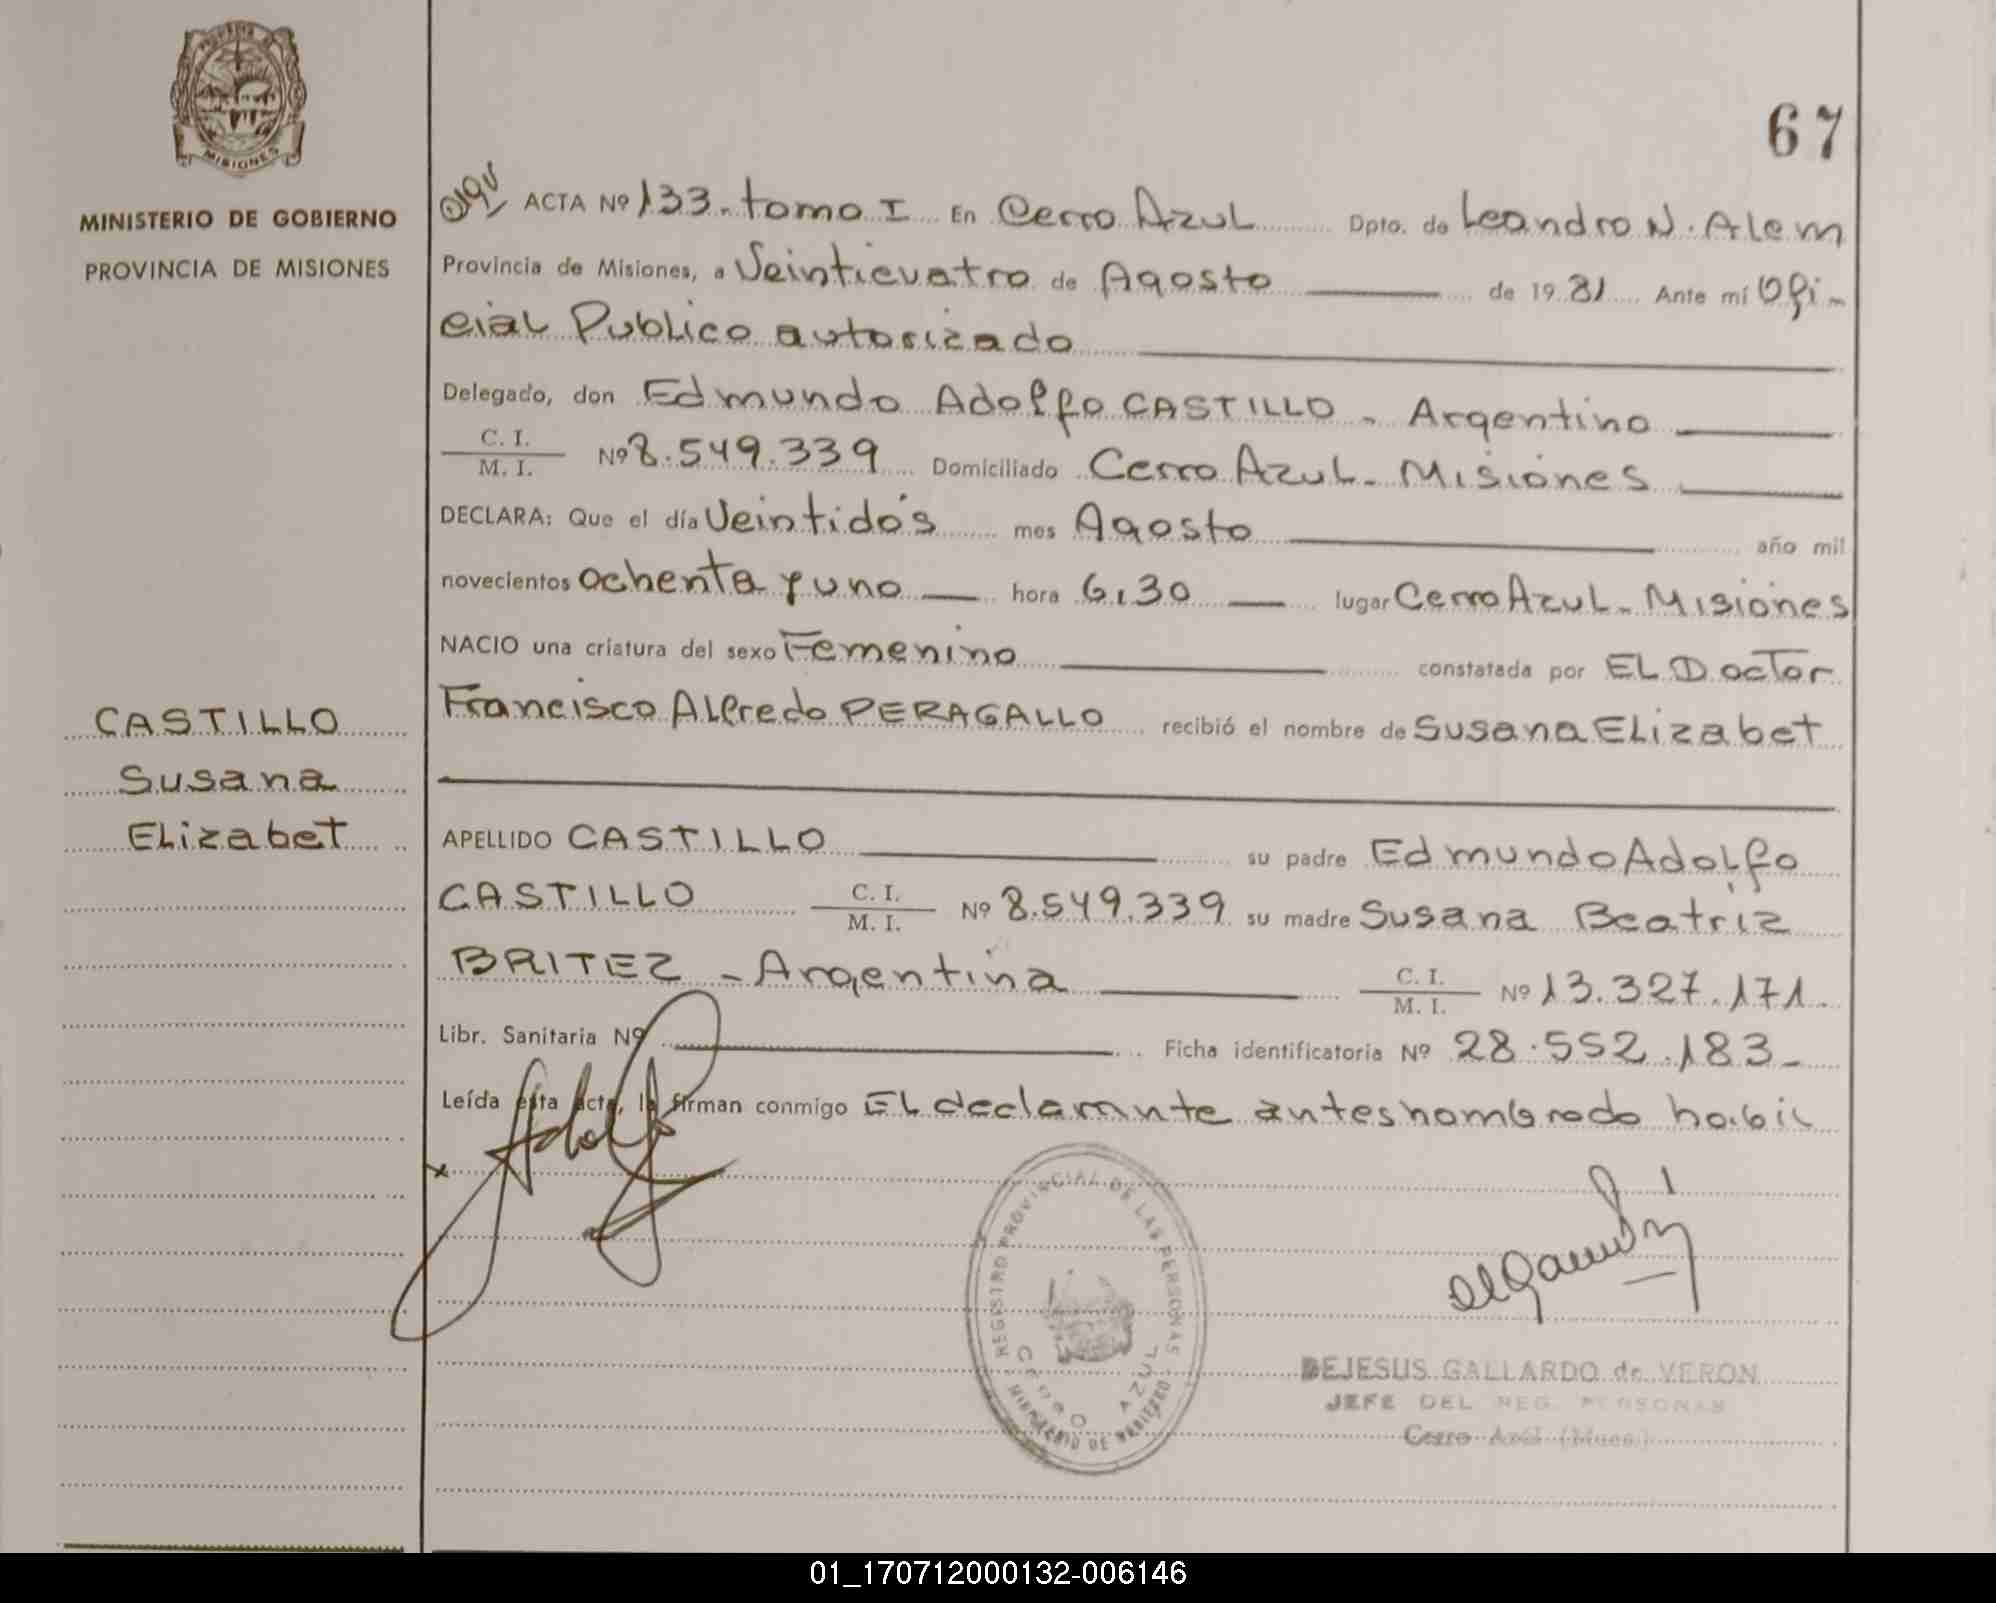 PROVINCIA DE
MISIONES
MINISTERIO DE GOBIERNO
PROVINCIA DE MISIONES
67
ACTA Nº 133. tomo I En Cerro Azul Dpto. de Leandro N. Alem
Provincia de Misiones, a Veinticuatro de Agosto de 19 81 Ante mí Ofi-
cial Publico autorizado
Delegado, don Edmundo Adolfo CASTILLO - Argentino
C. I.
M. I. Nº 8.549.339 Domiciliado Cerro Azul - Misiones
DECLARA: Que el día Veintidós mes Agosto año mil
novecientos ochenta y uno hora 6,30 lugar Cerro Azul - Misiones
NACIO una criatura del sexo Femenino constatada por EL Doctor
Francisco Alfredo PERAGALLO recibió el nombre de Susana Elizabet
CASTILLO
Susana
Elizabet
APELLIDO CASTILLO su padre Edmundo Adolfo
CASTILLO C. I.
M. I. Nº 8.549.339 su madre Susana Beatriz
BRITEZ - Argentina C. I.
M. I. Nº 13.327.171.
Libr. Sanitaria Nº Ficha identificatoria Nº 28.552.183-
Leída esta acta, la firman conmigo EL declarante antes nombrado habil
x Adolfo
REGISTRO PROVINCIAL DE LAS PERSONAS
CERRO AZUL
MINISTERIO DE GOBIERNO
DEJESUS GALLARDO de VERON
JEFE DEL REG. PERSONAS
Cerro Azul (Mnes.)
01_170712000132-006146